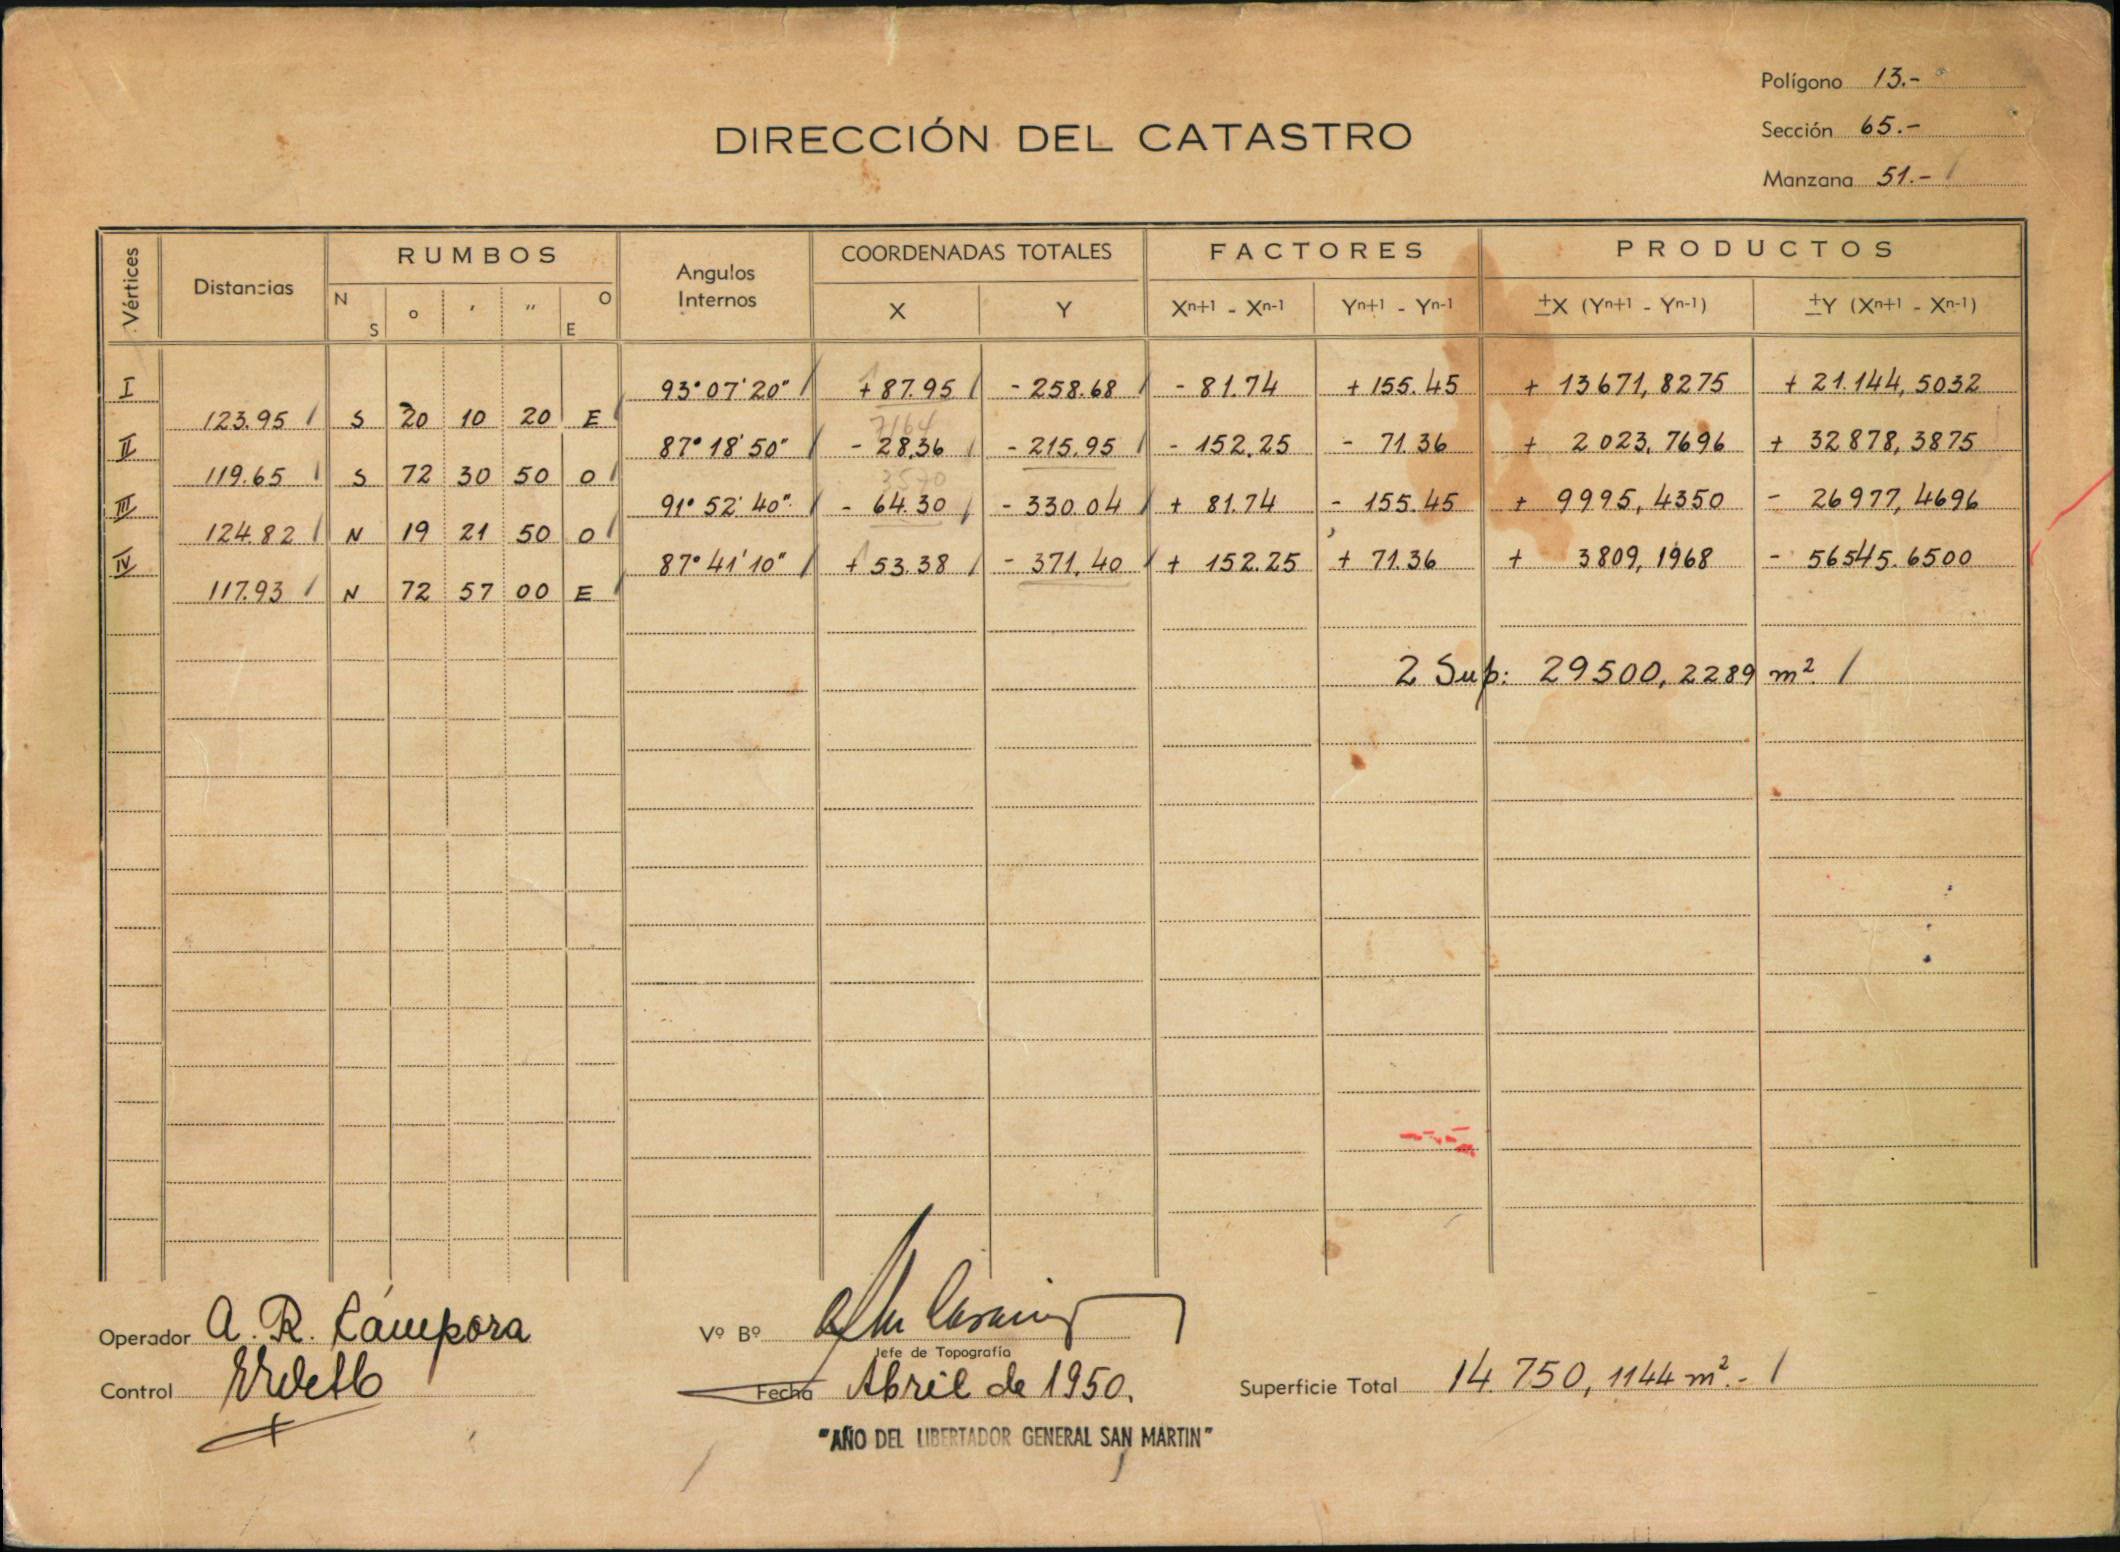 Polígono 13.-
Sección 65.-
Manzana 51.-
DIRECCIÓN DEL CATASTRO
Vértices Distancias RUMBOS Angulos Internos COORDENADAS TOTALES FACTORES PRODUCTOS
N S o ' " O E X Y Xn+1 - Xn-1 Yn+1 - Yn-1 ±X (Yn+1 - Yn-1) ±Y (Xn+1 - Xn-1)
I 93°07'20" +87.95 -258.68 -81.74 +155.45 +13671,8275 +21.144,5032
123.95 S 20 10 20 E
7164
II 87°18'50" -28,36 -215.95 -152.25 -71.36 +2023,7696 +32878,3875
119.65 S 72 30 50 O
3570
III 91°52'40" -64.30 -330.04 +81.74 -155.45 +9995,4350 -26977,4696
124.82 N 19 21 50 O
IV 87°41'10" +53.38 -371,40 +152.25 +71.36 +3809,1968 -56545.6500
117.93 N 72 57 00 E
2 Sup: 29500,2289 m²
Operador A. R. Cámpora Vº Bº
Jefe de Topografía
Control Fecha Abril de 1950. Superficie Total 14.750,1144 m².-
"AÑO DEL LIBERTADOR GENERAL SAN MARTIN"